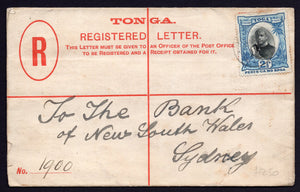 TONGA.
REGISTERED LETTER.
THIS LETTER MUST BE GIVEN TO AN OFFICER OF THE POST OFFICE
TO BE REGISTERED AND A RECEIPT OBTAINED FOR IT.
R
TOGA
2½
To The Bank
of New South Wales
Sydney
No. 1900